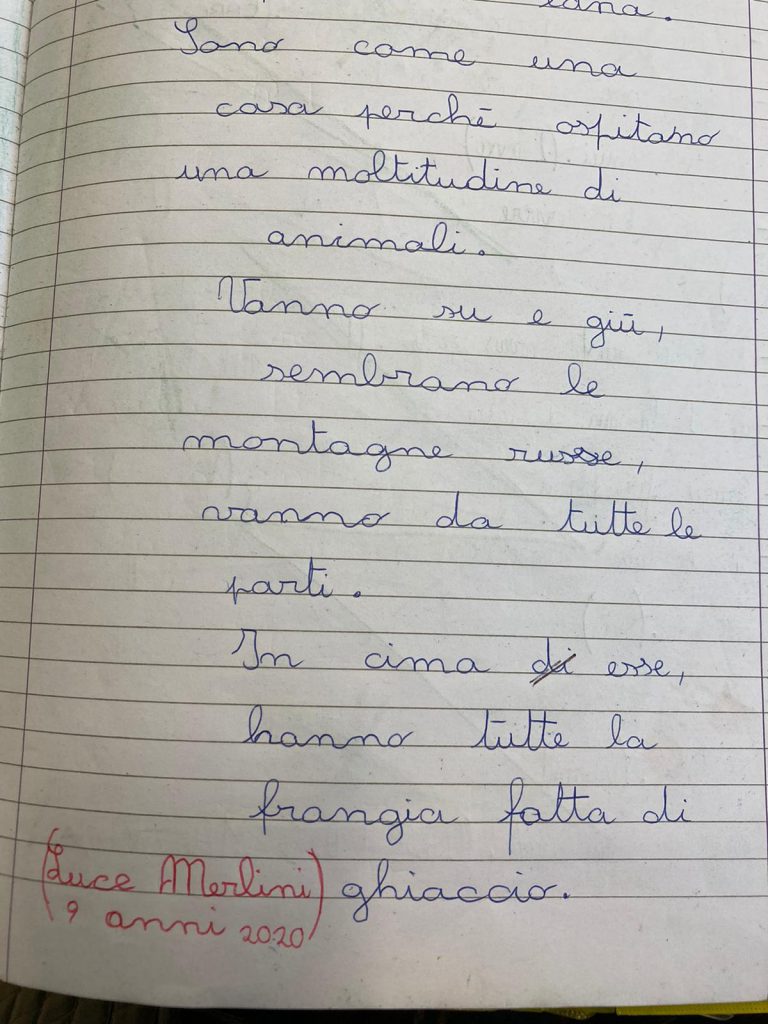 Sono come una
casa perchē ospitano
una moltitudine di
animali.
Vanno su e giū,
sembrano le
montagne russe,
vanno da tutte le
parti.
In cima di esse,
hanno tutte la
frangia fatta di
ghiaccio.
(Luce Merlini)
9 anni 2020